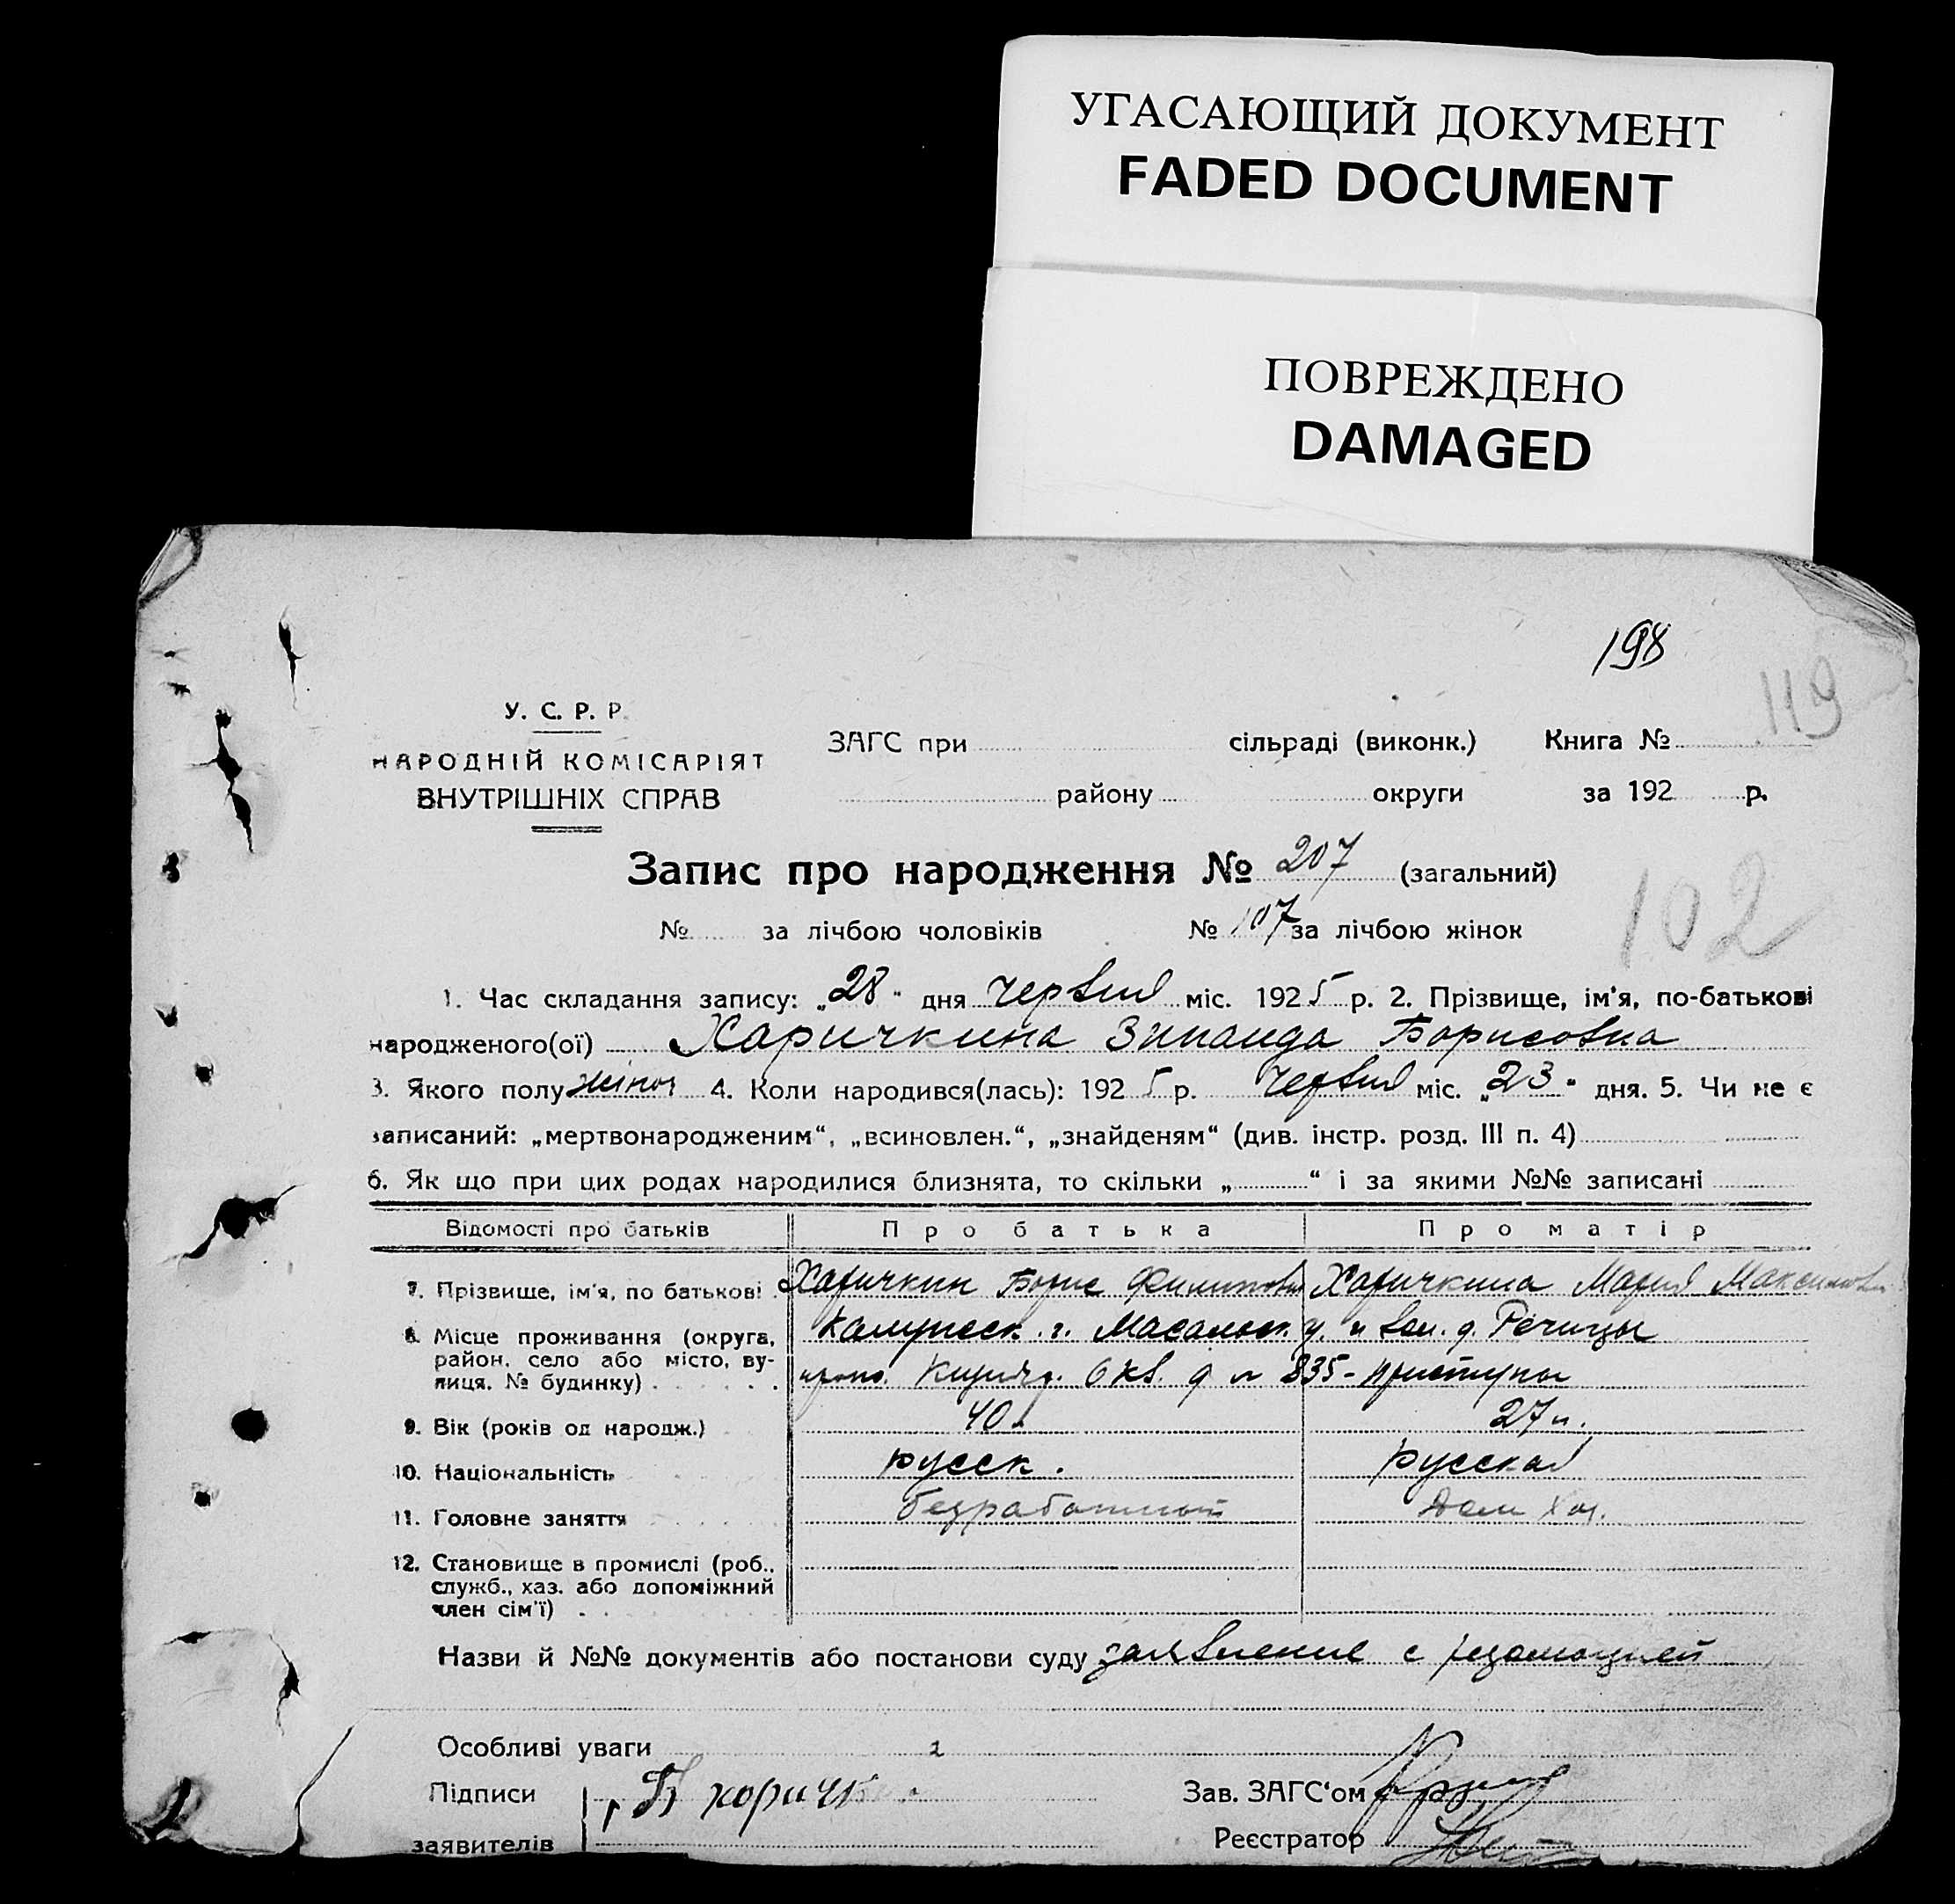 УГАСАЮЩИЙ ДОКУМЕНТ
FADED DOCUMENT
ПОВРЕЖДЕНО
DAMAGED
198
119
У. С. Р. Р.
НАРОДНІЙ КОМІСАРІЯТ
ВНУТРІШНІХ СПРАВ
ЗАГС при сільраді (виконк.) Книга №
району округи за 192 р.
Запис про народження № 207 (загальний)
102
№ за лічбою чоловіків № 107 за лічбою жінок
1. Час складання запису: „28" дня червня міс. 1925 р. 2. Прізвище, ім'я, по-батькові
народженого(ої) Харичкина Зинаида Борисовна
3. Якого полу жіноч 4. Коли народився(лась): 1925 р. червня міс. „23" дня. 5. Чи не є
записаний: „мертвонародженим“, „всиновлен.“, „знайденям“ (див. інстр. розд. III п. 4)
6. Як що при цих родах народилися близнята, то скільки „ “ і за якими №№ записані
Відомості про батьків Про батька Про матір
7. Прізвише, ім'я, по батькові Харичкин Борис Харичкина Мария Максимовн
8. Місце проживання (округа, район, село або місто, вулиця. № будинку)
г. у. д. Речицы
6 кв. 835
9. Вік (років од народж.) 40 27
10. Національність русск. русская
11. Головне заняття безработный Дом хоз.
12. Становище в промислі (роб.,
служб., хаз. або допоміжний
член сім'ї)
Назви й №№ документів або постанови суду заявление с резолюцией
Особливі уваги
Підписи Б харичк Зав. ЗАГС‘ом
заявителів Реєстратор